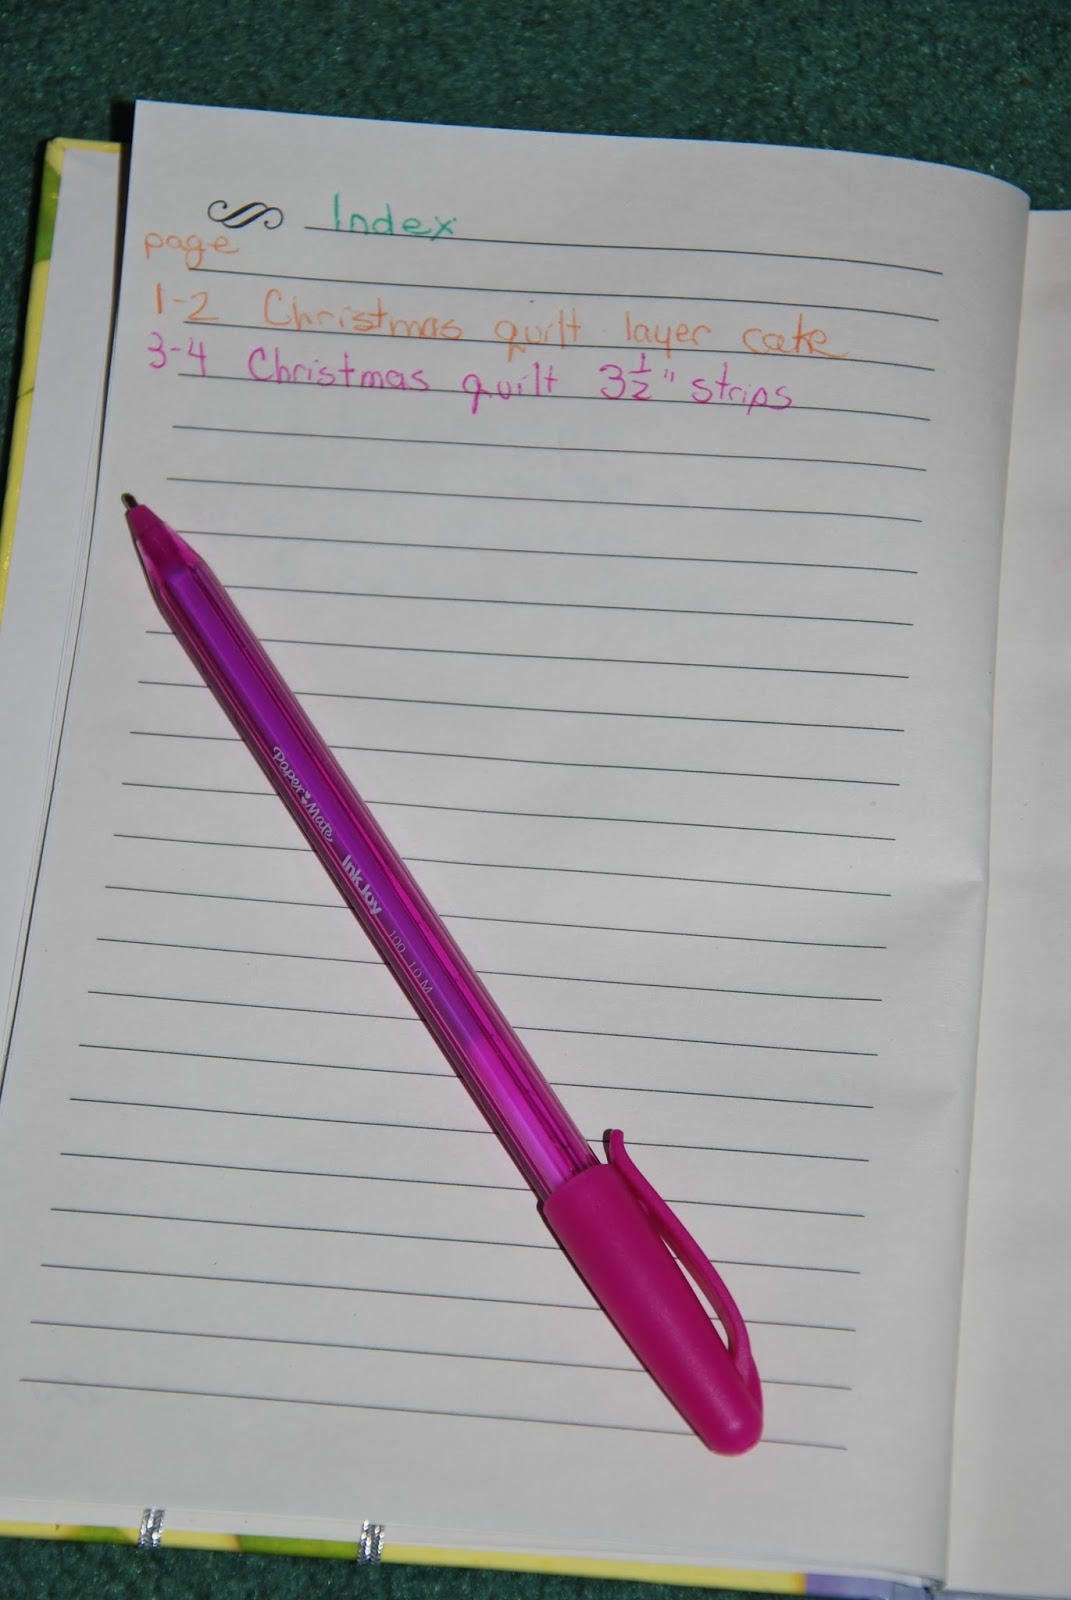 Index
page
1-2 Christmas quilt layer cake
3-4 Christmas quilt 3½" strips
Paper Mate InkJoy 100 1.0 M